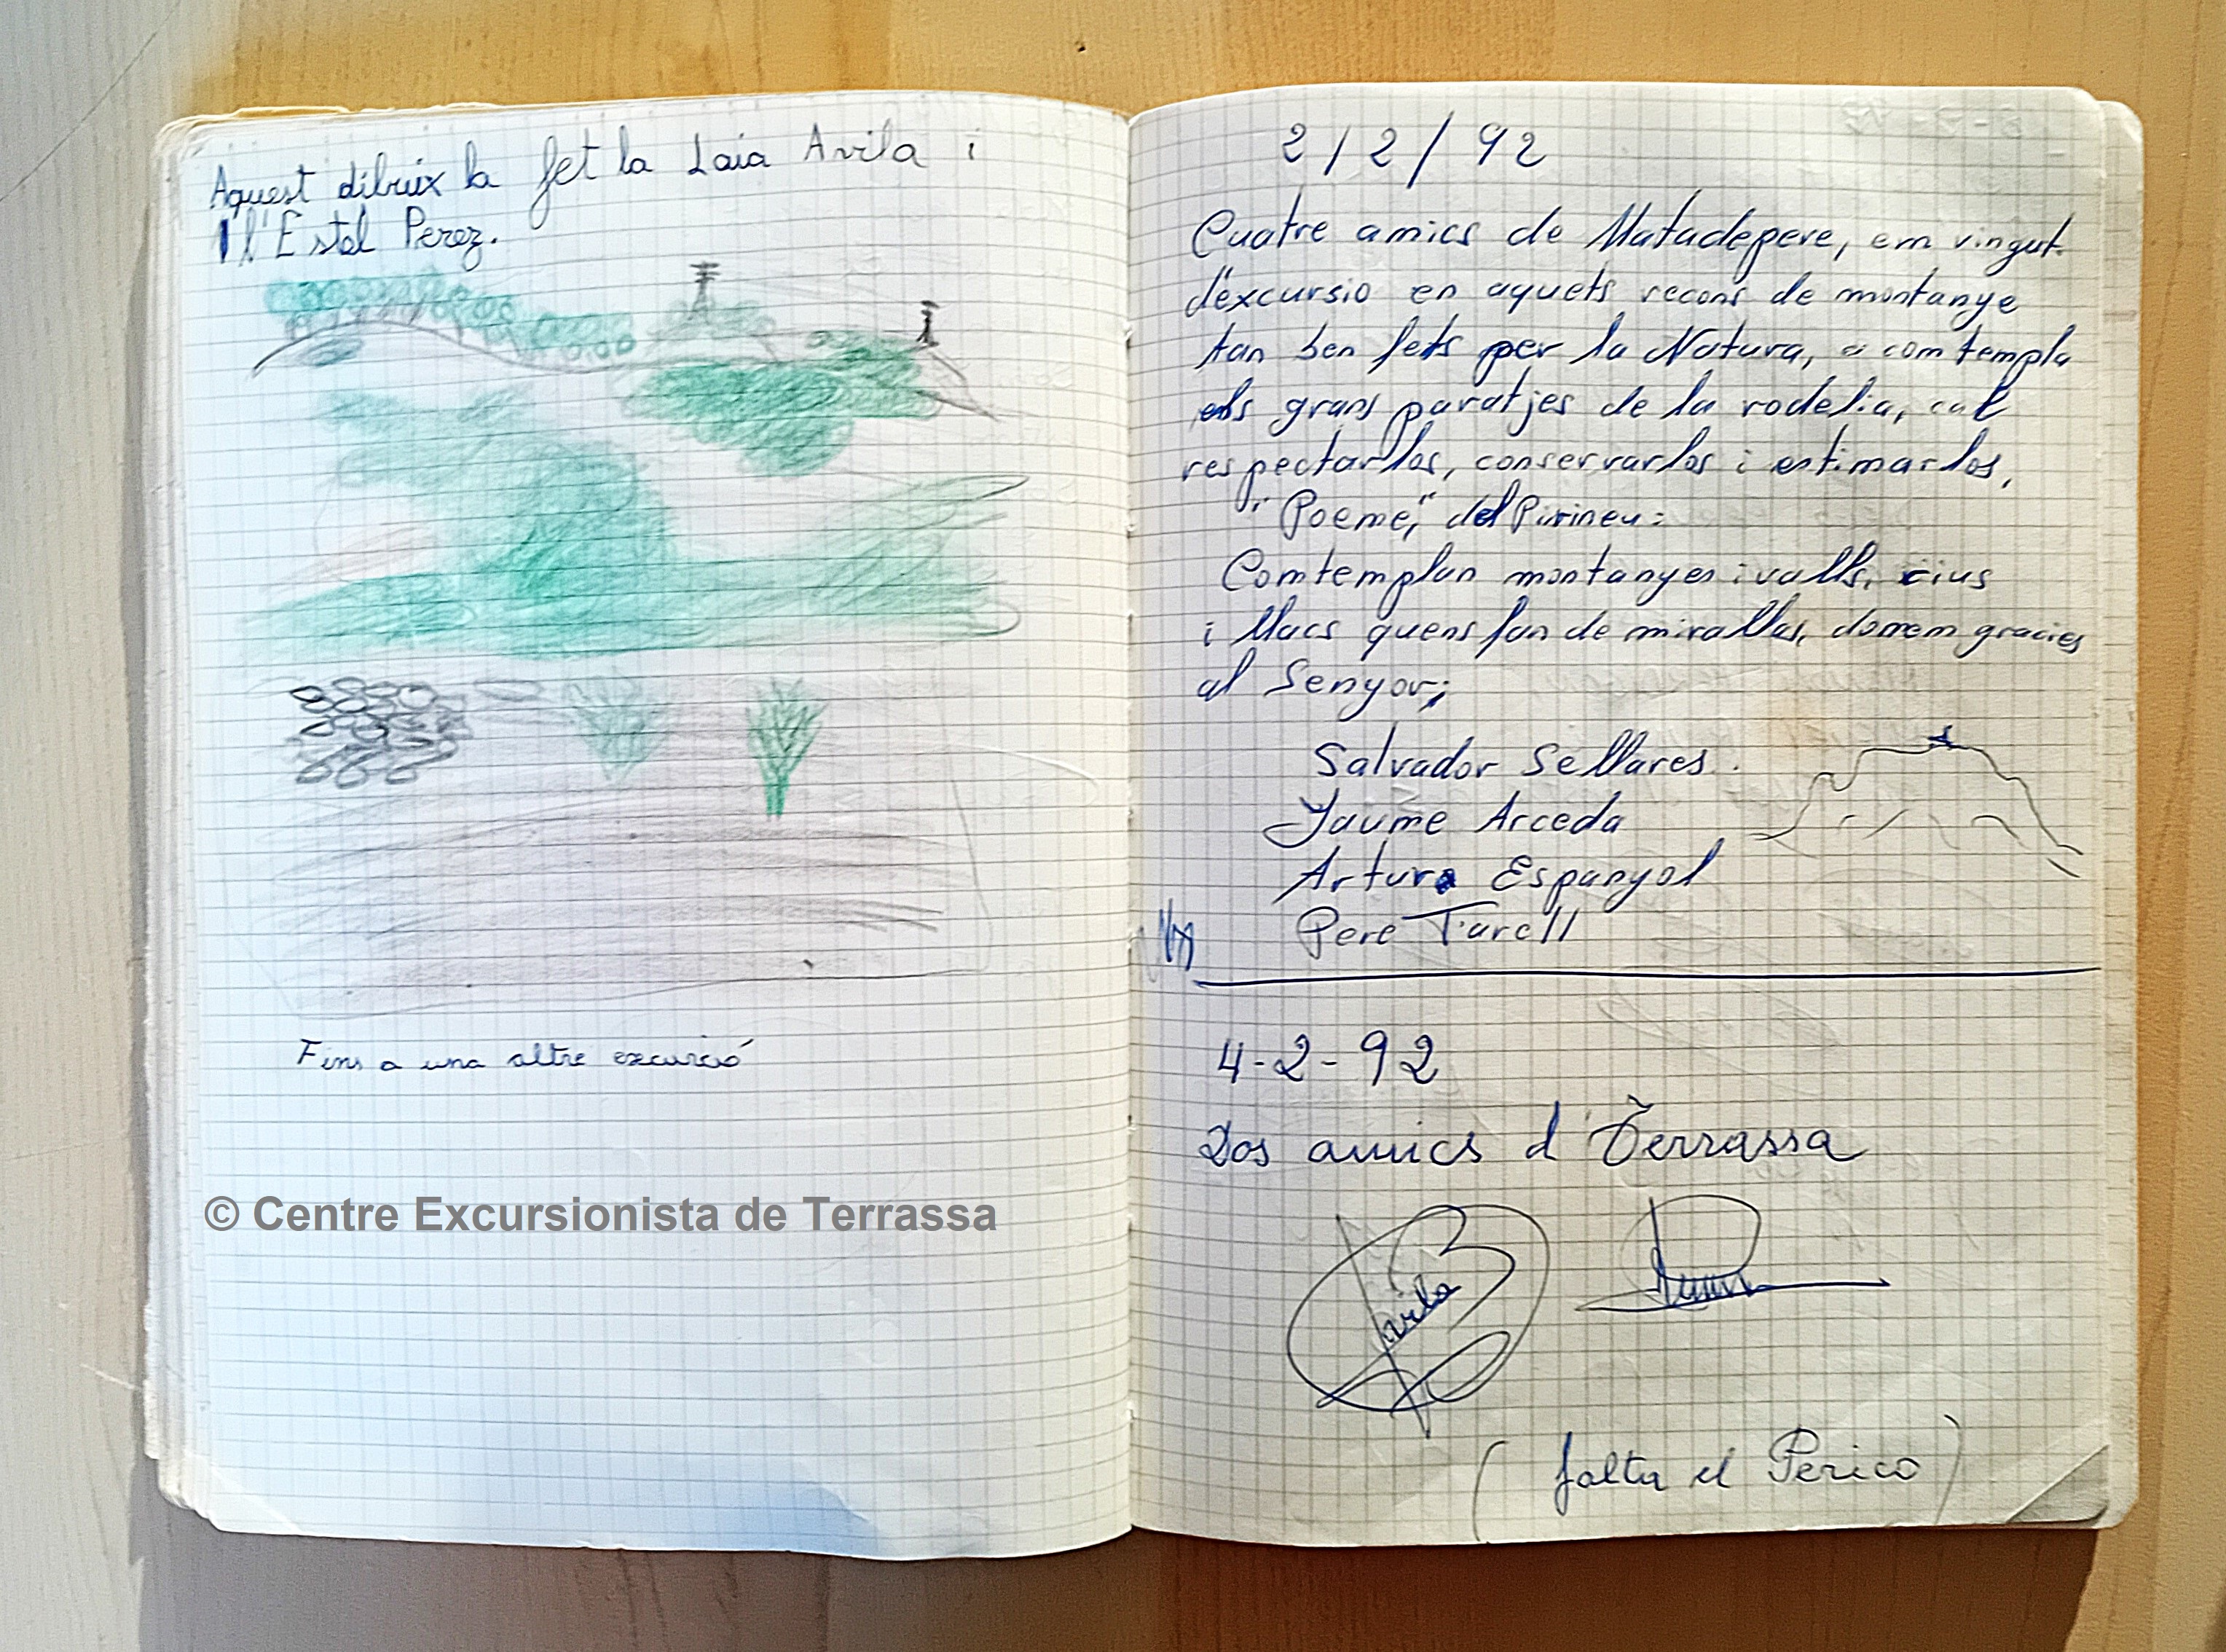 Aquest dibuix la fet la Laia Avila i
l'Estel Perez.
Fins a una altre excurció
© Centre Excursionista de Terrassa
2/2/92
Cuatre amics de Matadepere, em vingut
d'excursio en aquets recons de montanye
tan ben fets per la Natura, a comtempla
els grans paratjes de la rodelia, cal
respectarlos, conservarlos i estimarlos,
"Poeme", del Pirineu:
Comtemplan montanyes i valls, rius
i llacs quens fan de miralls, donem gracies
al Senyor;
Salvador Sellares.
Jaume Arceda
Artura Espanyol
Pere Tarell
4-2-92
Dos amics d'Terrassa
Avila
(falta el Perico)